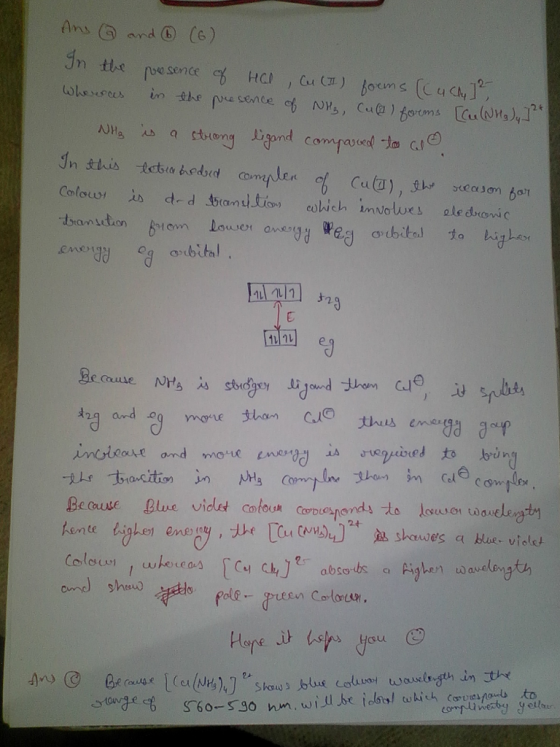 Ans ⓐ and ⓑ (6)
In the presence of HCl, Cu(II) forms [CuCl4]2-,
whereas in the presence of NH3, Cu(II) forms [Cu(NH3)4]2+
NH3 is a strong ligand compared to Cl⊖.
In this tetrahedral complex of Cu(II), the reason for
Colour is d-d transition which involves electronic
transition from lower energy eg orbital to higher
energy eg orbital.
1L 1L 1 t2g
E
1L 1L eg
Because NH3 is stroger ligand than Cl⊖, it splits
t2g and eg more than Cl⊖ thus energy gap
increase and more energy is required to bring
the transition in NH3 complex than in Cl⊖ complex.
Because Blue violet colour corresponds to lower wavelength
hence higher energy, the [Cu(NH3)4]2+ shows a blue-violet
Colour, whereas [CuCl4]2- absorbs a higher wavelength
and show pale-green Colour.
Hope it helps you ☺
Ans ⓒ Because [Cu(NH3)4]2+ shows blue colour wavelength in the
range of 560-590 nm. will be ideal which corresponds to
complimentry yellow